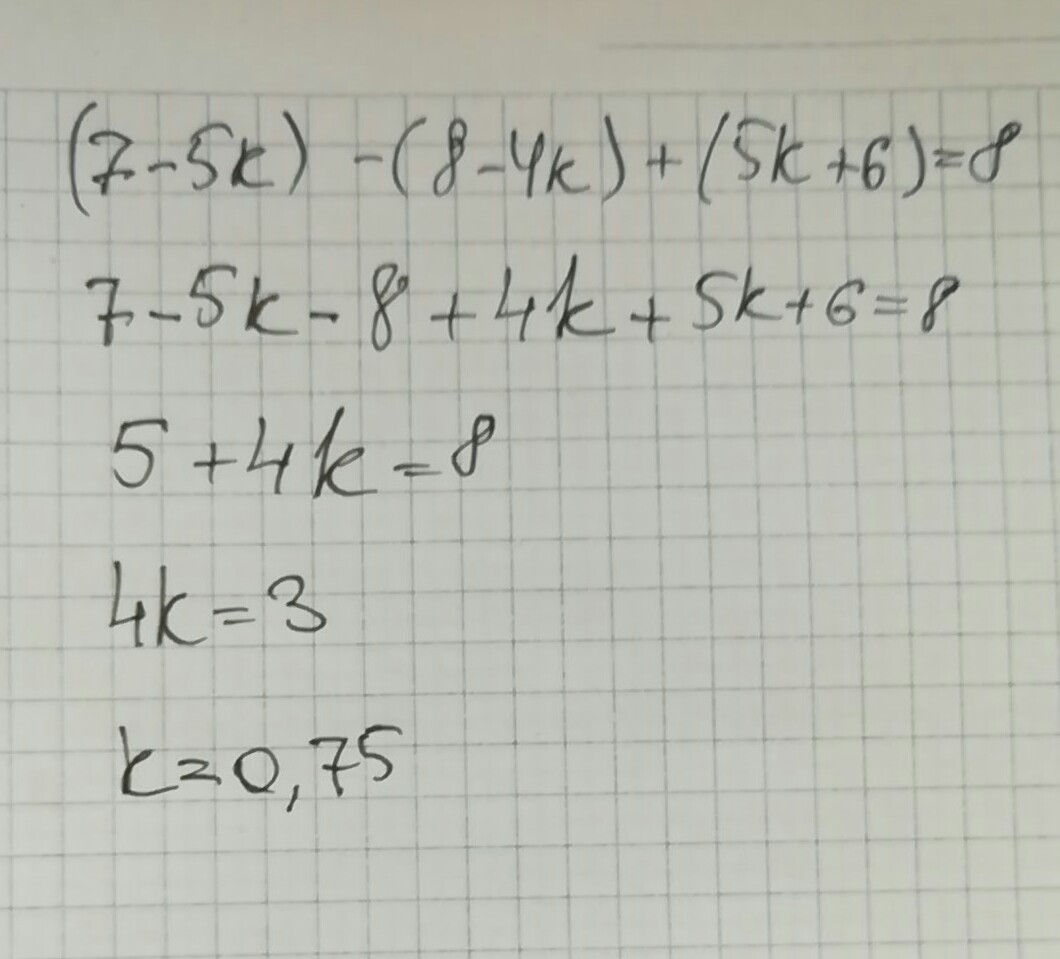 (7-5k) -(8-4k)+(5k+6)=8
7-5k-8+4k+5k+6=8
5+4k=8
4k=3
k=0,75